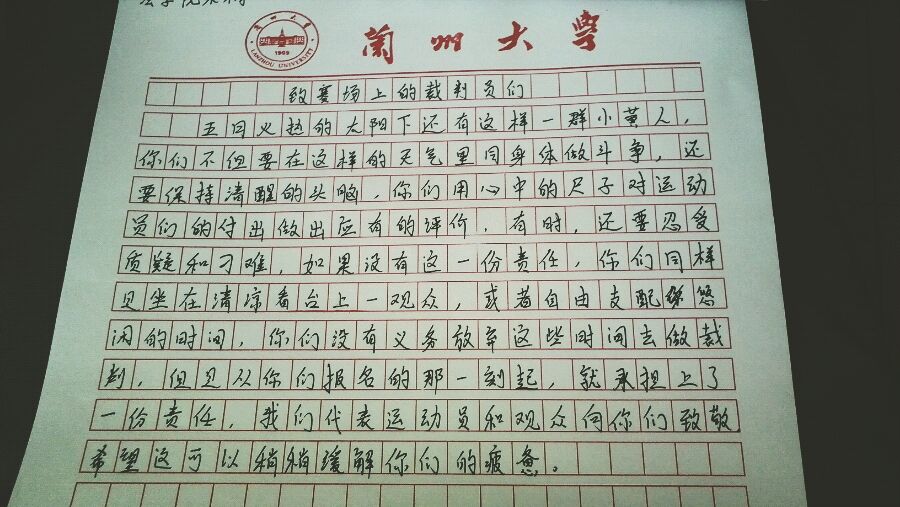 兰州大学
LANZHOU UNIVERSITY
1909
致赛场上的裁判员们
五月火热的太阳下还有这样一群小黄人，
你们不但要在这样的天气里同身体做斗争，还
要保持清醒的头脑，你们用心中的尺子对运动
员们的付出做出应有的评价，有时，还要忍受
质疑和刁难，如果没有这一份责任，你们同样
是坐在清凉看台上一观众，或者自由支配悠
闲的时间，你们没有义务放弃这些时间去做裁
判，但是从你们报名的那一刻起，就承担上了
一份责任，我们代表运动员和观众向你们致敬
希望这可以稍稍缓解你们的疲惫。